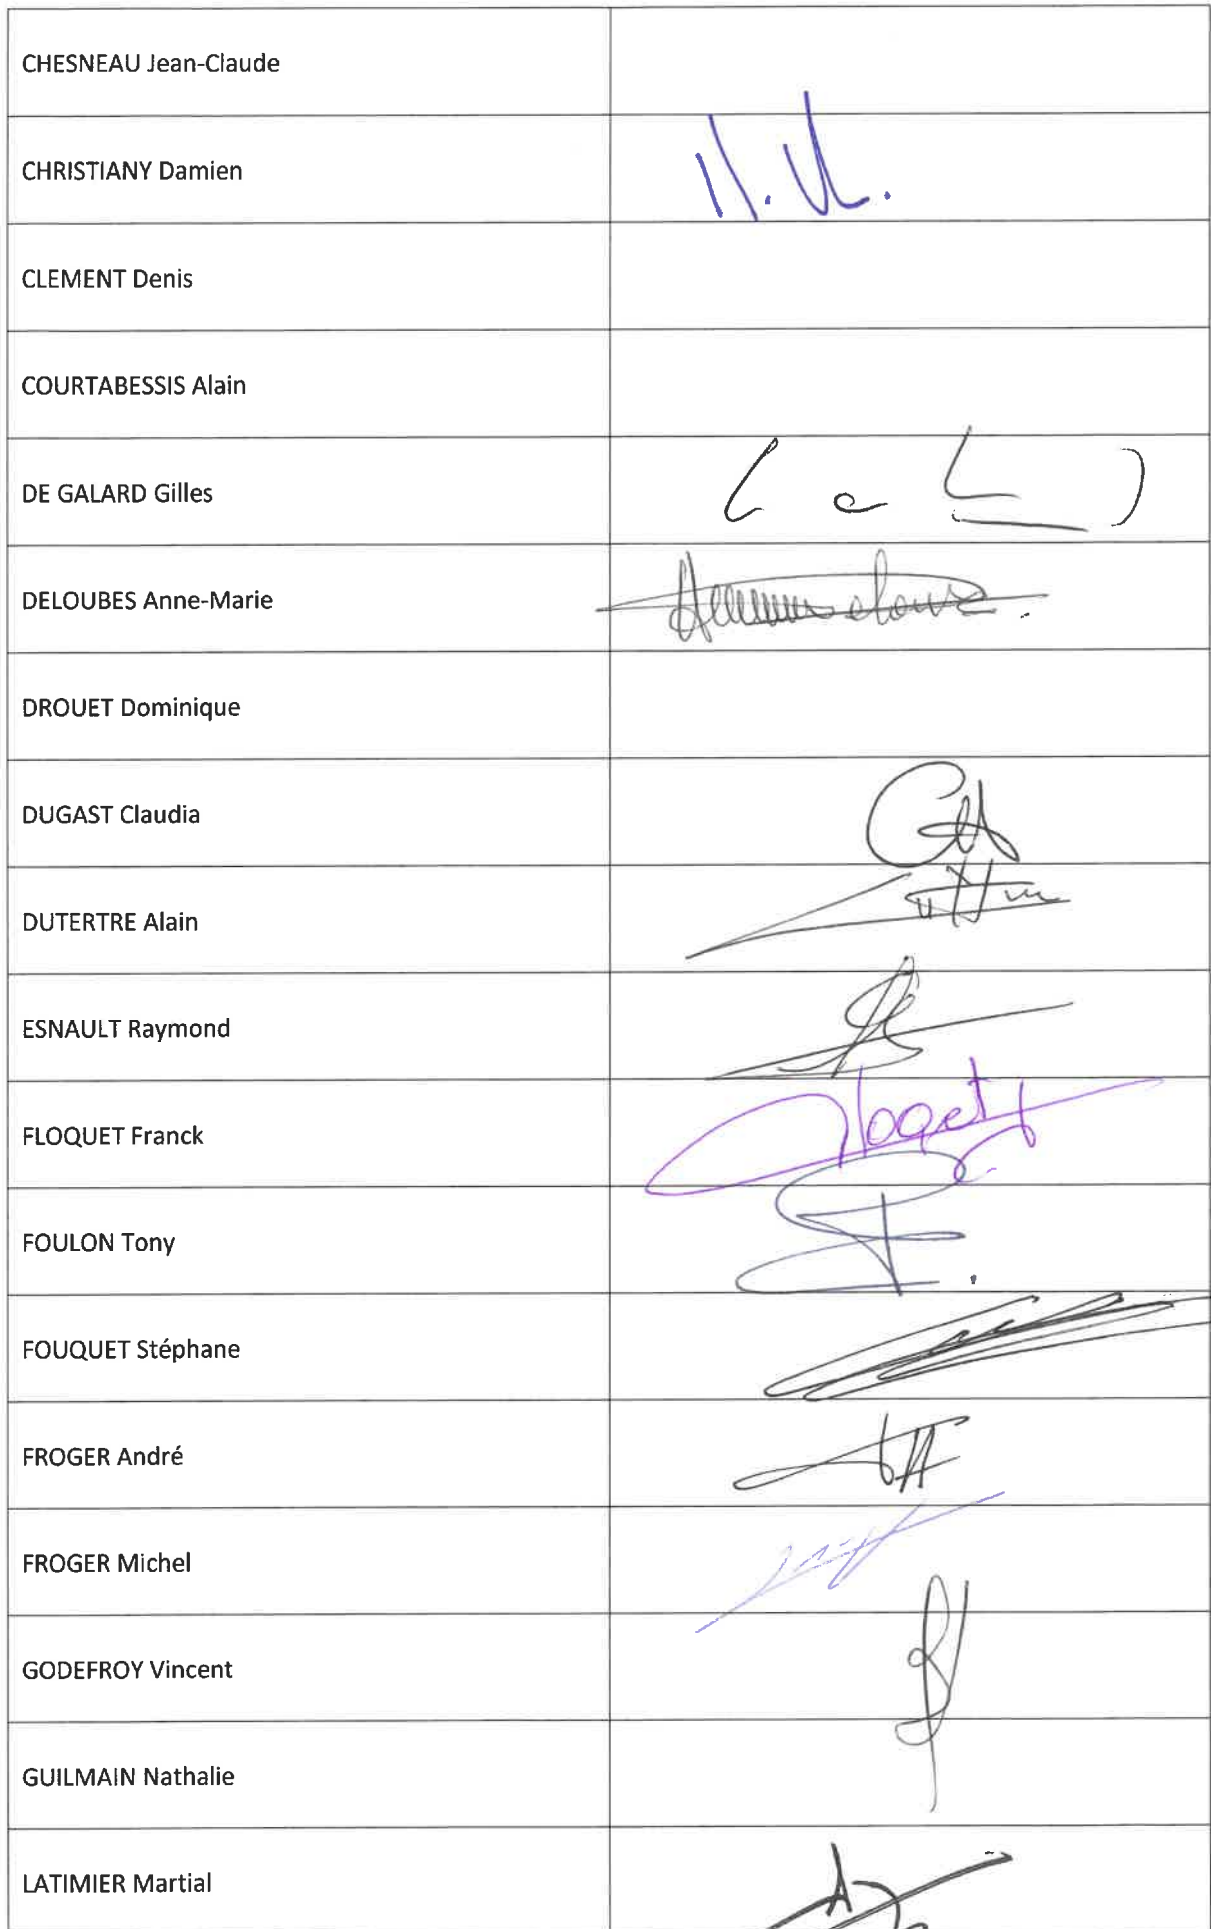 CHESNEAU Jean-Claude
CHRISTIANY Damien
CLEMENT Denis
COURTABESSIS Alain
DE GALARD Gilles
DELOUBES Anne-Marie
DROUET Dominique
DUGAST Claudia
DUTERTRE Alain
ESNAULT Raymond
FLOQUET Franck
FOULON Tony
FOUQUET Stéphane
FROGER André
FROGER Michel
GODEFROY Vincent
GUILMAIN Nathalie
LATIMIER Martial